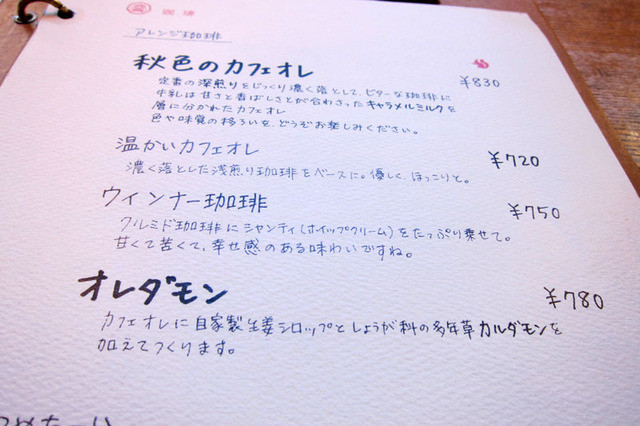 珈琲
アレンジ珈琲
秋色のカフェオレ ¥830
定番の深煎りをじっくり濃く落として、ビターな珈琲に
牛乳は甘さと香ばしさとが合わさったキャラメルミルクを
層に分かれたカフェオレ
色や味覚の移ろいを、どうぞお楽しみください。
温かいカフェオレ ¥720
濃く落とした浅煎り珈琲をベースに。優しく、ほっこりと。
ウィンナー珈琲 ¥750
クルミド珈琲にシャンティ(ホイップクリーム)をたっぷり乗せて。
甘くて苦くて、幸せ感のある味わいですね。
オレダモン ¥780
カフェオレに自家製生姜シロップとしょうが科の多年草カルダモンを
加えてつくります。